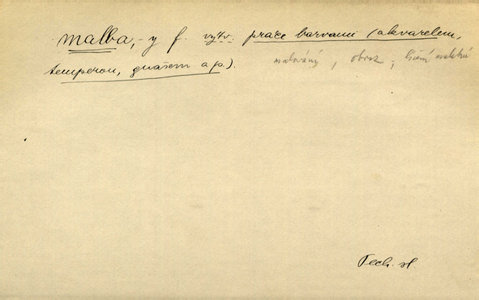 malba, -y f. výtv. práce barvami (akvarelem,
temperou, kvašem a p.). malování, obraz,
Tech. sl